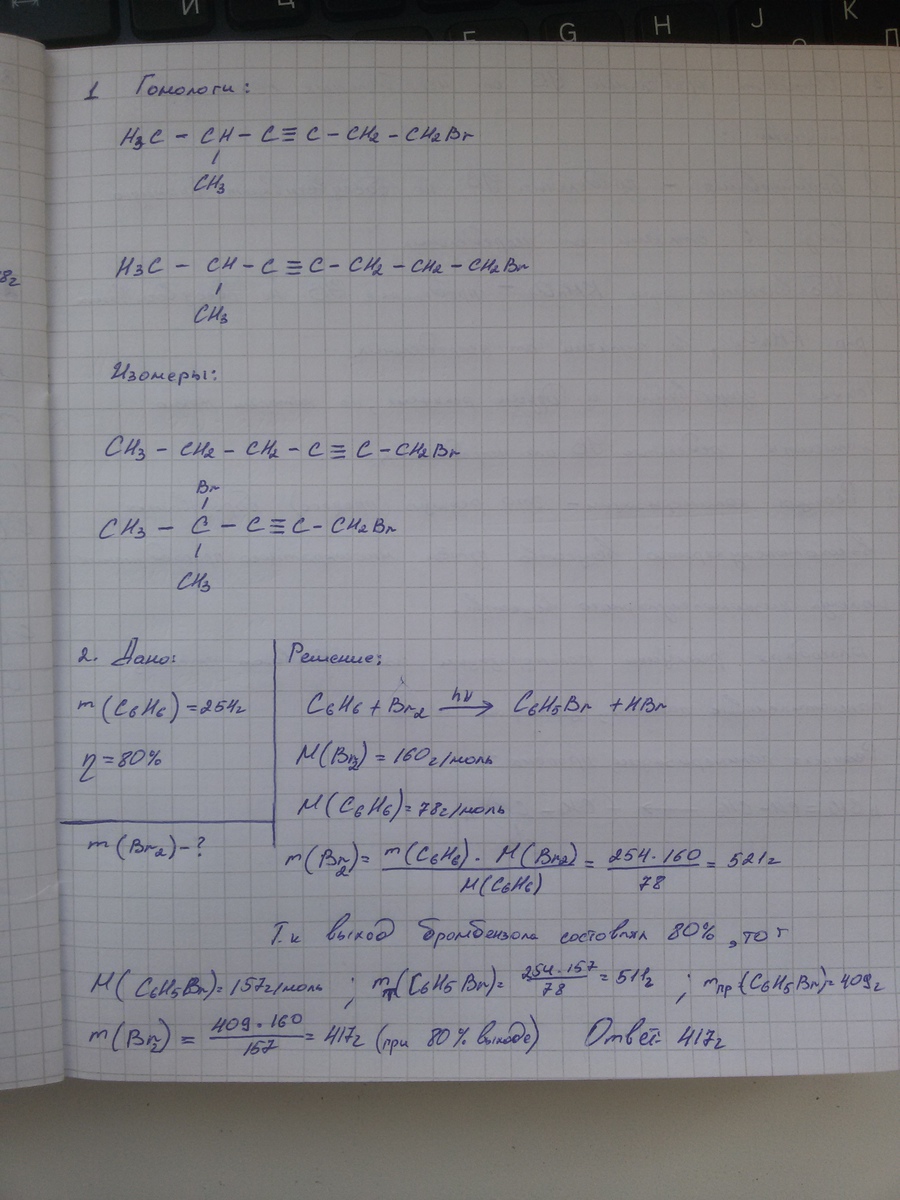 И Ц F G H J K
1 Гомологи:
H₃C - CH - C ≡ C - CH₂ - CH₂Br
CH₃
H₃C - CH - C ≡ C - CH₂ - CH₂ - CH₂Br
CH₃
8г
Изомеры:
CH₃ - CH₂ - CH₂ - C ≡ C - CH₂Br
Br
CH₃ - C - C ≡ C - CH₂Br
CH₃
2. Дано:
m(C₆H₆) = 254г
η = 80%
m(Br₂) - ?
Решение:
C₆H₆ + Br₂ —hν→ C₆H₅Br + HBr
M(Br₂) = 160г/моль
M(C₆H₆) = 78г/моль
m(Br₂) = m(C₆H₆) · M(Br₂) / M(C₆H₆) = 254 · 160 / 78 = 521г
Т.к выход бромбензола составлял 80%, то
M(C₆H₅Br) = 157г/моль ; mт(C₆H₅Br) = 254 · 157 / 78 = 511г ; mпр(C₆H₅Br) = 409г
m(Br₂) = 409 · 160 / 157 = 417г (при 80% выходе) Ответ: 417г